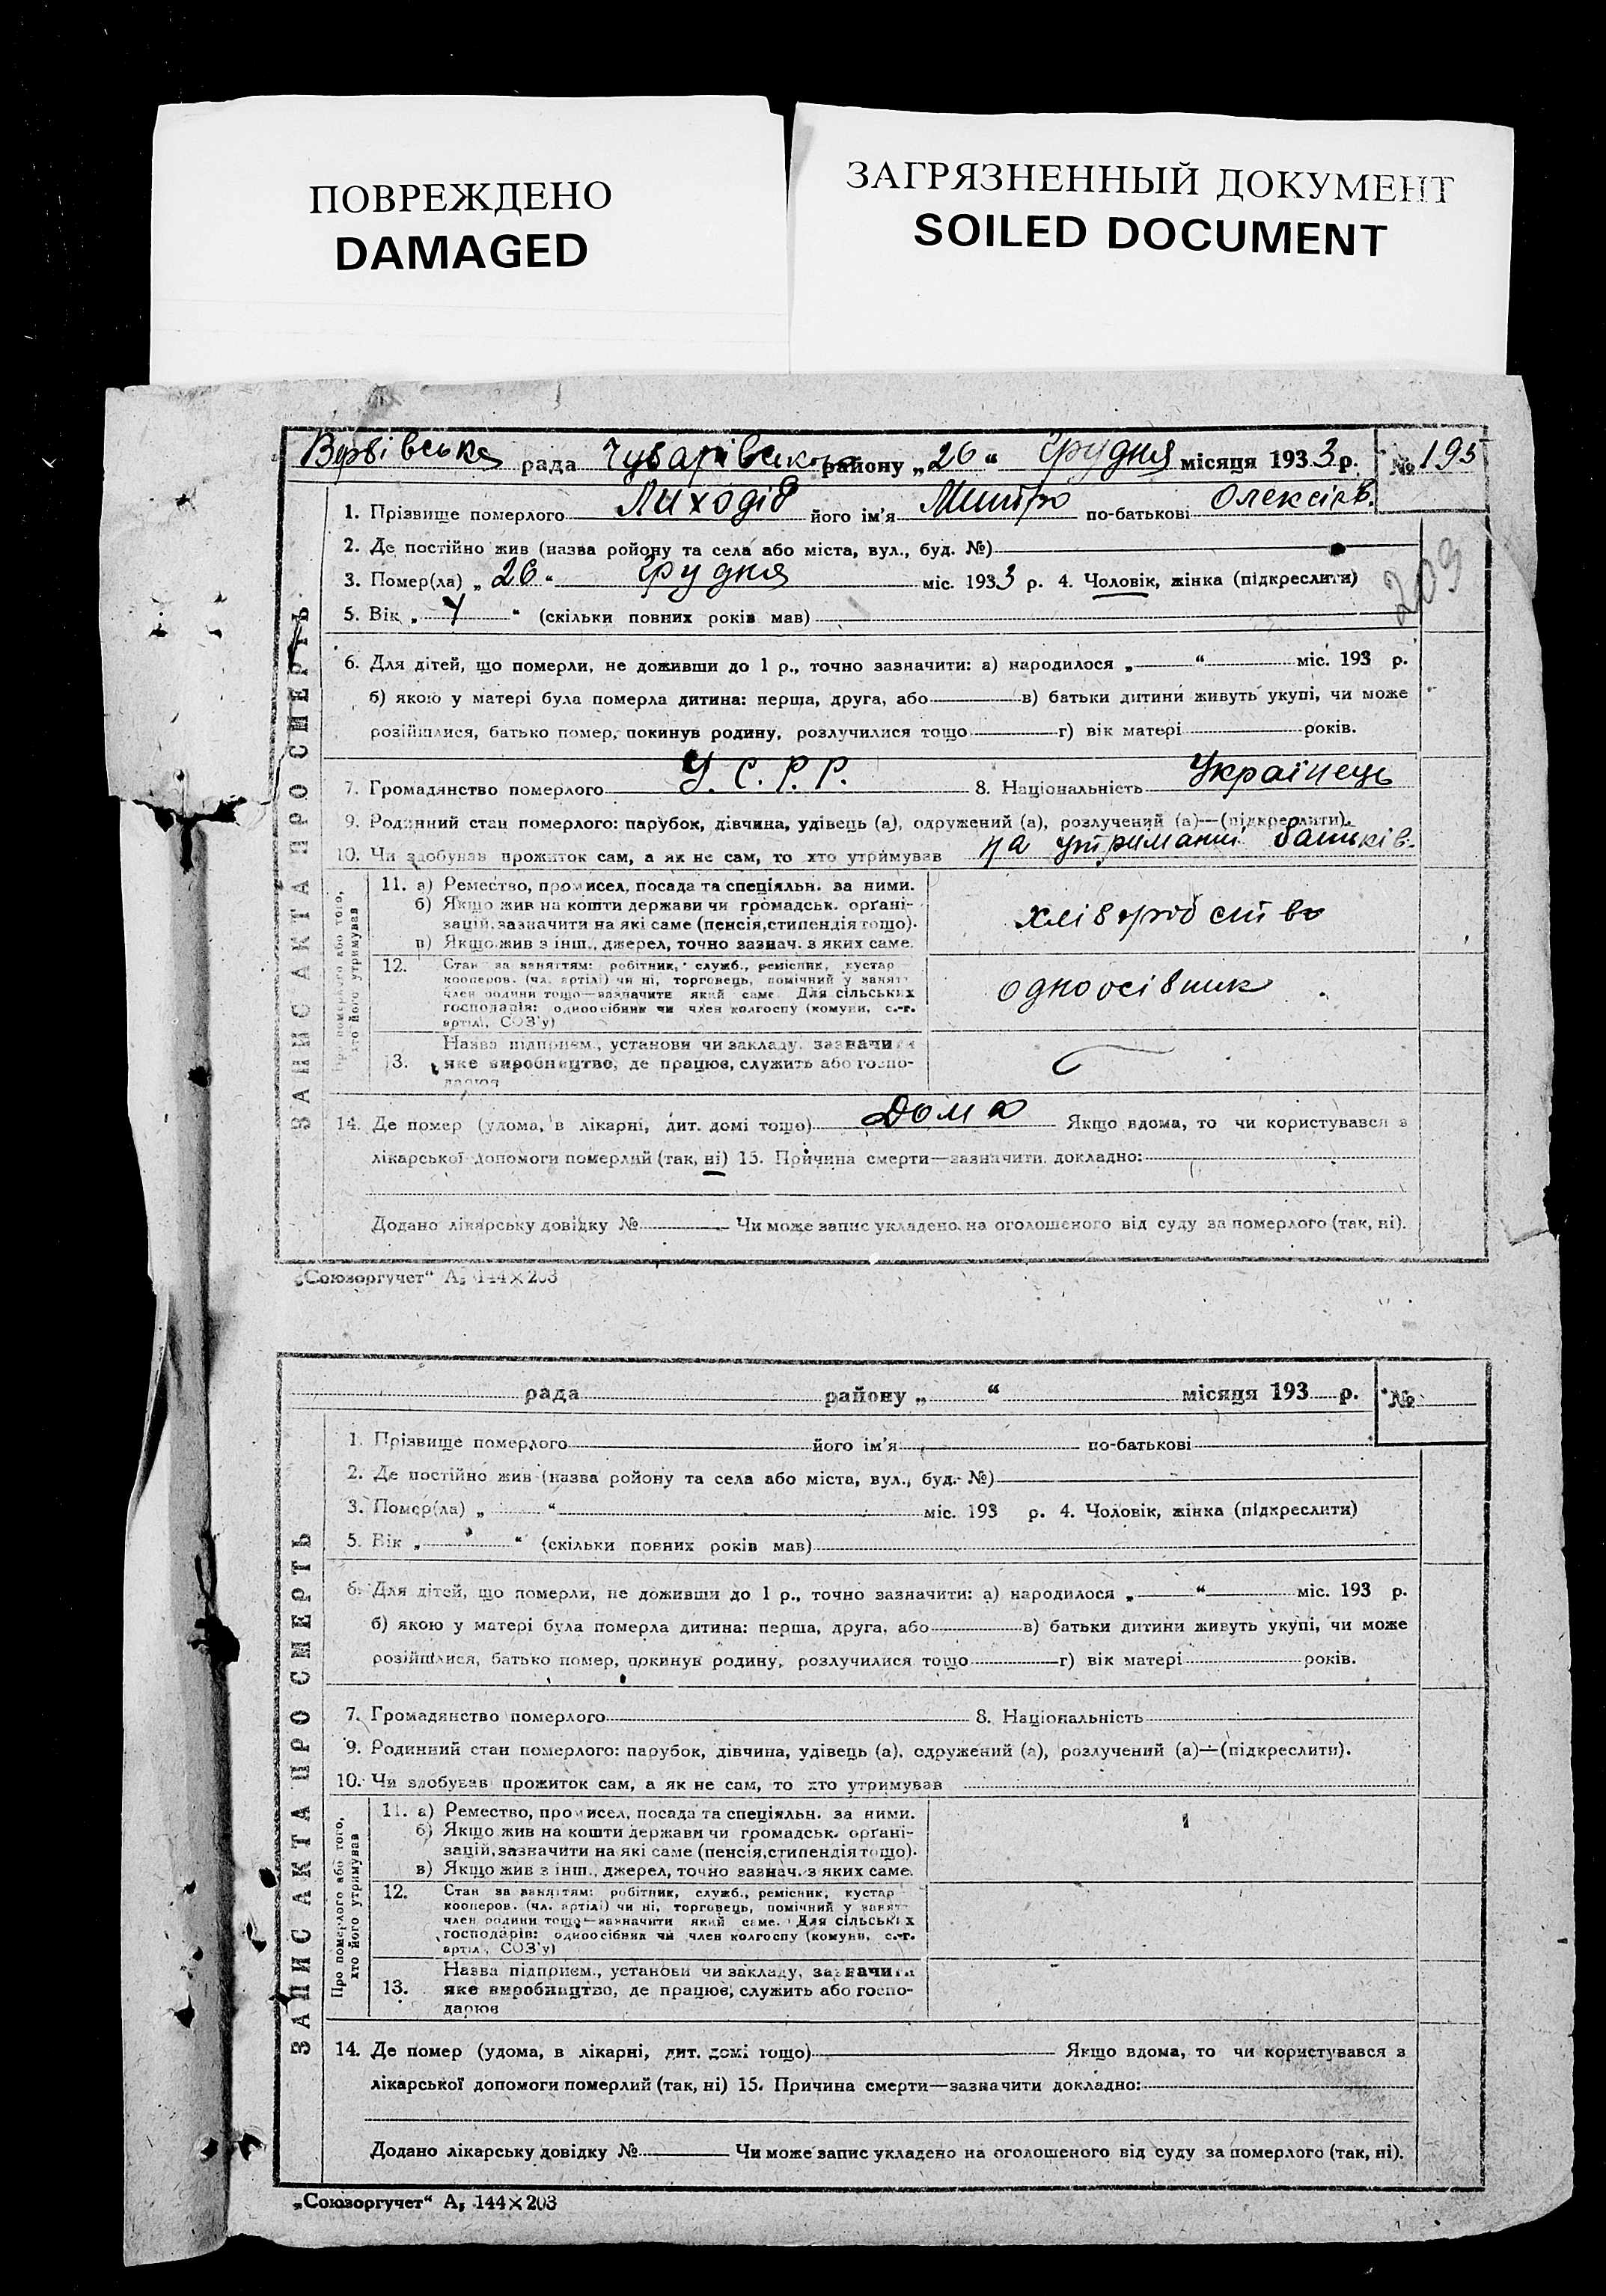 ПОВРЕЖДЕНО
DAMAGED
ЗАГРЯЗНЕННЫЙ ДОКУМЕНТ
SOILED DOCUMENT
Вербівська рада Чубарівського району „26“ Грудня місяця 1933 р. № 195
209
ЗАПИС АКТА ПРО СМЕРТЬ
1. Прізвище померлого Лиходід його ім'я Митро по-батькові Олексієв.
2. Де постійно жив (назва ройону та села або міста, вул., буд. №)
3. Помер(ла) „26“ Грудня міс. 1933 р. 4. Чоловік, жінка (підкреслити)
5. Вік „ “ (скільки повних років мав)
6. Для дітей, що померли, не доживши до 1 р., точно зазначити: а) народилося „ “ міс. 193 р.
б) якою у матері була померла дитина: перша, друга, або в) батьки дитини живуть укупі, чи може
розійшлися, батько помер, покинув родину, розлучилися тощо г) вік матері років.
7. Громадянство померлого У.С.Р.Р. 8. Національність Українець
9. Родинний стан померлого: парубок, дівчина, удівець (а), одружений (а), розлучений (а)—(підкреслити).
10. Чи здобував прожиток сам, а як не сам, то хто утримував на утриманні батьків.
Про померлого або того,
хто його утримував
11. а) Ремество, промисел, посада та спеціяльн. за ними.
б) Якщо жив на кошти держави чи громадськ. орґані-
зацій, зазначити на які саме (пенсія, стипендія тощо).
в) Якщо жив з інш., джерел, точно зазнач. з яких саме.
хліборобство
12. Стан за заняттям: робітник, служб., ремісник, кустар
кооперов. (чл. артілі) чи ні, торговець, помічний у занят
член родини тощо—зазначити який саме. Для сільських
господарів: одноосібник чи член колгоспу (комуни, с.-г.
артіл., СОЗ'у)
одноосібник
Назва підприєм., установи чи закладу, зазначити
13. яке виробництво, де працює, служить або госпо-
дарює
14. Де помер (удома, в лікарні, дит. домі тощо) Дома Якщо вдома, то чи користувався з
лікарської допомоги померлий (так, ні) 15. Причина смерти—зазначити докладно:
Додано лікарську довідку № Чи може запис укладено на оголошеного від суду за померлого (так, ні).
„Союзоргучет“ А₅ 144×203
рада району „ “ місяця 193 р. №
ЗАПИС АКТА ПРО СМЕРТЬ
1. Прізвище померлого його ім'я по-батькові
2. Де постійно жив (назва ройону та села або міста, вул., буд. №)
3. Помер(ла) „ “ міс. 193 р. 4. Чоловік, жінка (підкреслити)
5. Вік „ “ (скільки повних років мав)
6. Для дітей, що померли, не доживши до 1 р., точно зазначити: а) народилося „ “ міс. 193 р.
б) якою у матері була померла дитина: перша, друга, або в) батьки дитини живуть укупі, чи може
розійшлися, батько помер, покинув родину, розлучилися тощо г) вік матері років.
7. Громадянство померлого 8. Національність
9. Родинний стан померлого: парубок, дівчина, удівець (а), одружений (а), розлучений (а)—(підкреслити).
10. Чи здобував прожиток сам, а як не сам, то хто утримував
Про померлого або того,
хто його утримував
11. а) Ремество, промисел, посада та спеціяльн. за ними.
б) Якщо жив на кошти держави чи громадськ. орґані-
зацій, зазначити на які саме (пенсія, стипендія тощо).
в) Якщо жив з інш., джерел, точно зазнач. з яких саме.
12. Стан за заняттям: робітник, служб., ремісник, кустар
кооперов. (чл. артілі) чи ні, торговець, помічний у занят
член родини тощо—зазначити який саме. Для сільських
господарів: одноосібник чи член колгоспу (комуни, с.-г.
артіл., СОЗ'у)
Назва підприєм., установи чи закладу, зазначити
13. яке виробництво, де працює, служить або госпо-
дарює
14. Де помер (удома, в лікарні, дит. домі тощо) Якщо вдома, то чи користувався з
лікарської допомоги померлий (так, ні) 15. Причина смерти—зазначити докладно:
Додано лікарську довідку № Чи може запис укладено на оголошеного від суду за померлого (так, ні).
„Союзоргучет“ А₅ 144×203